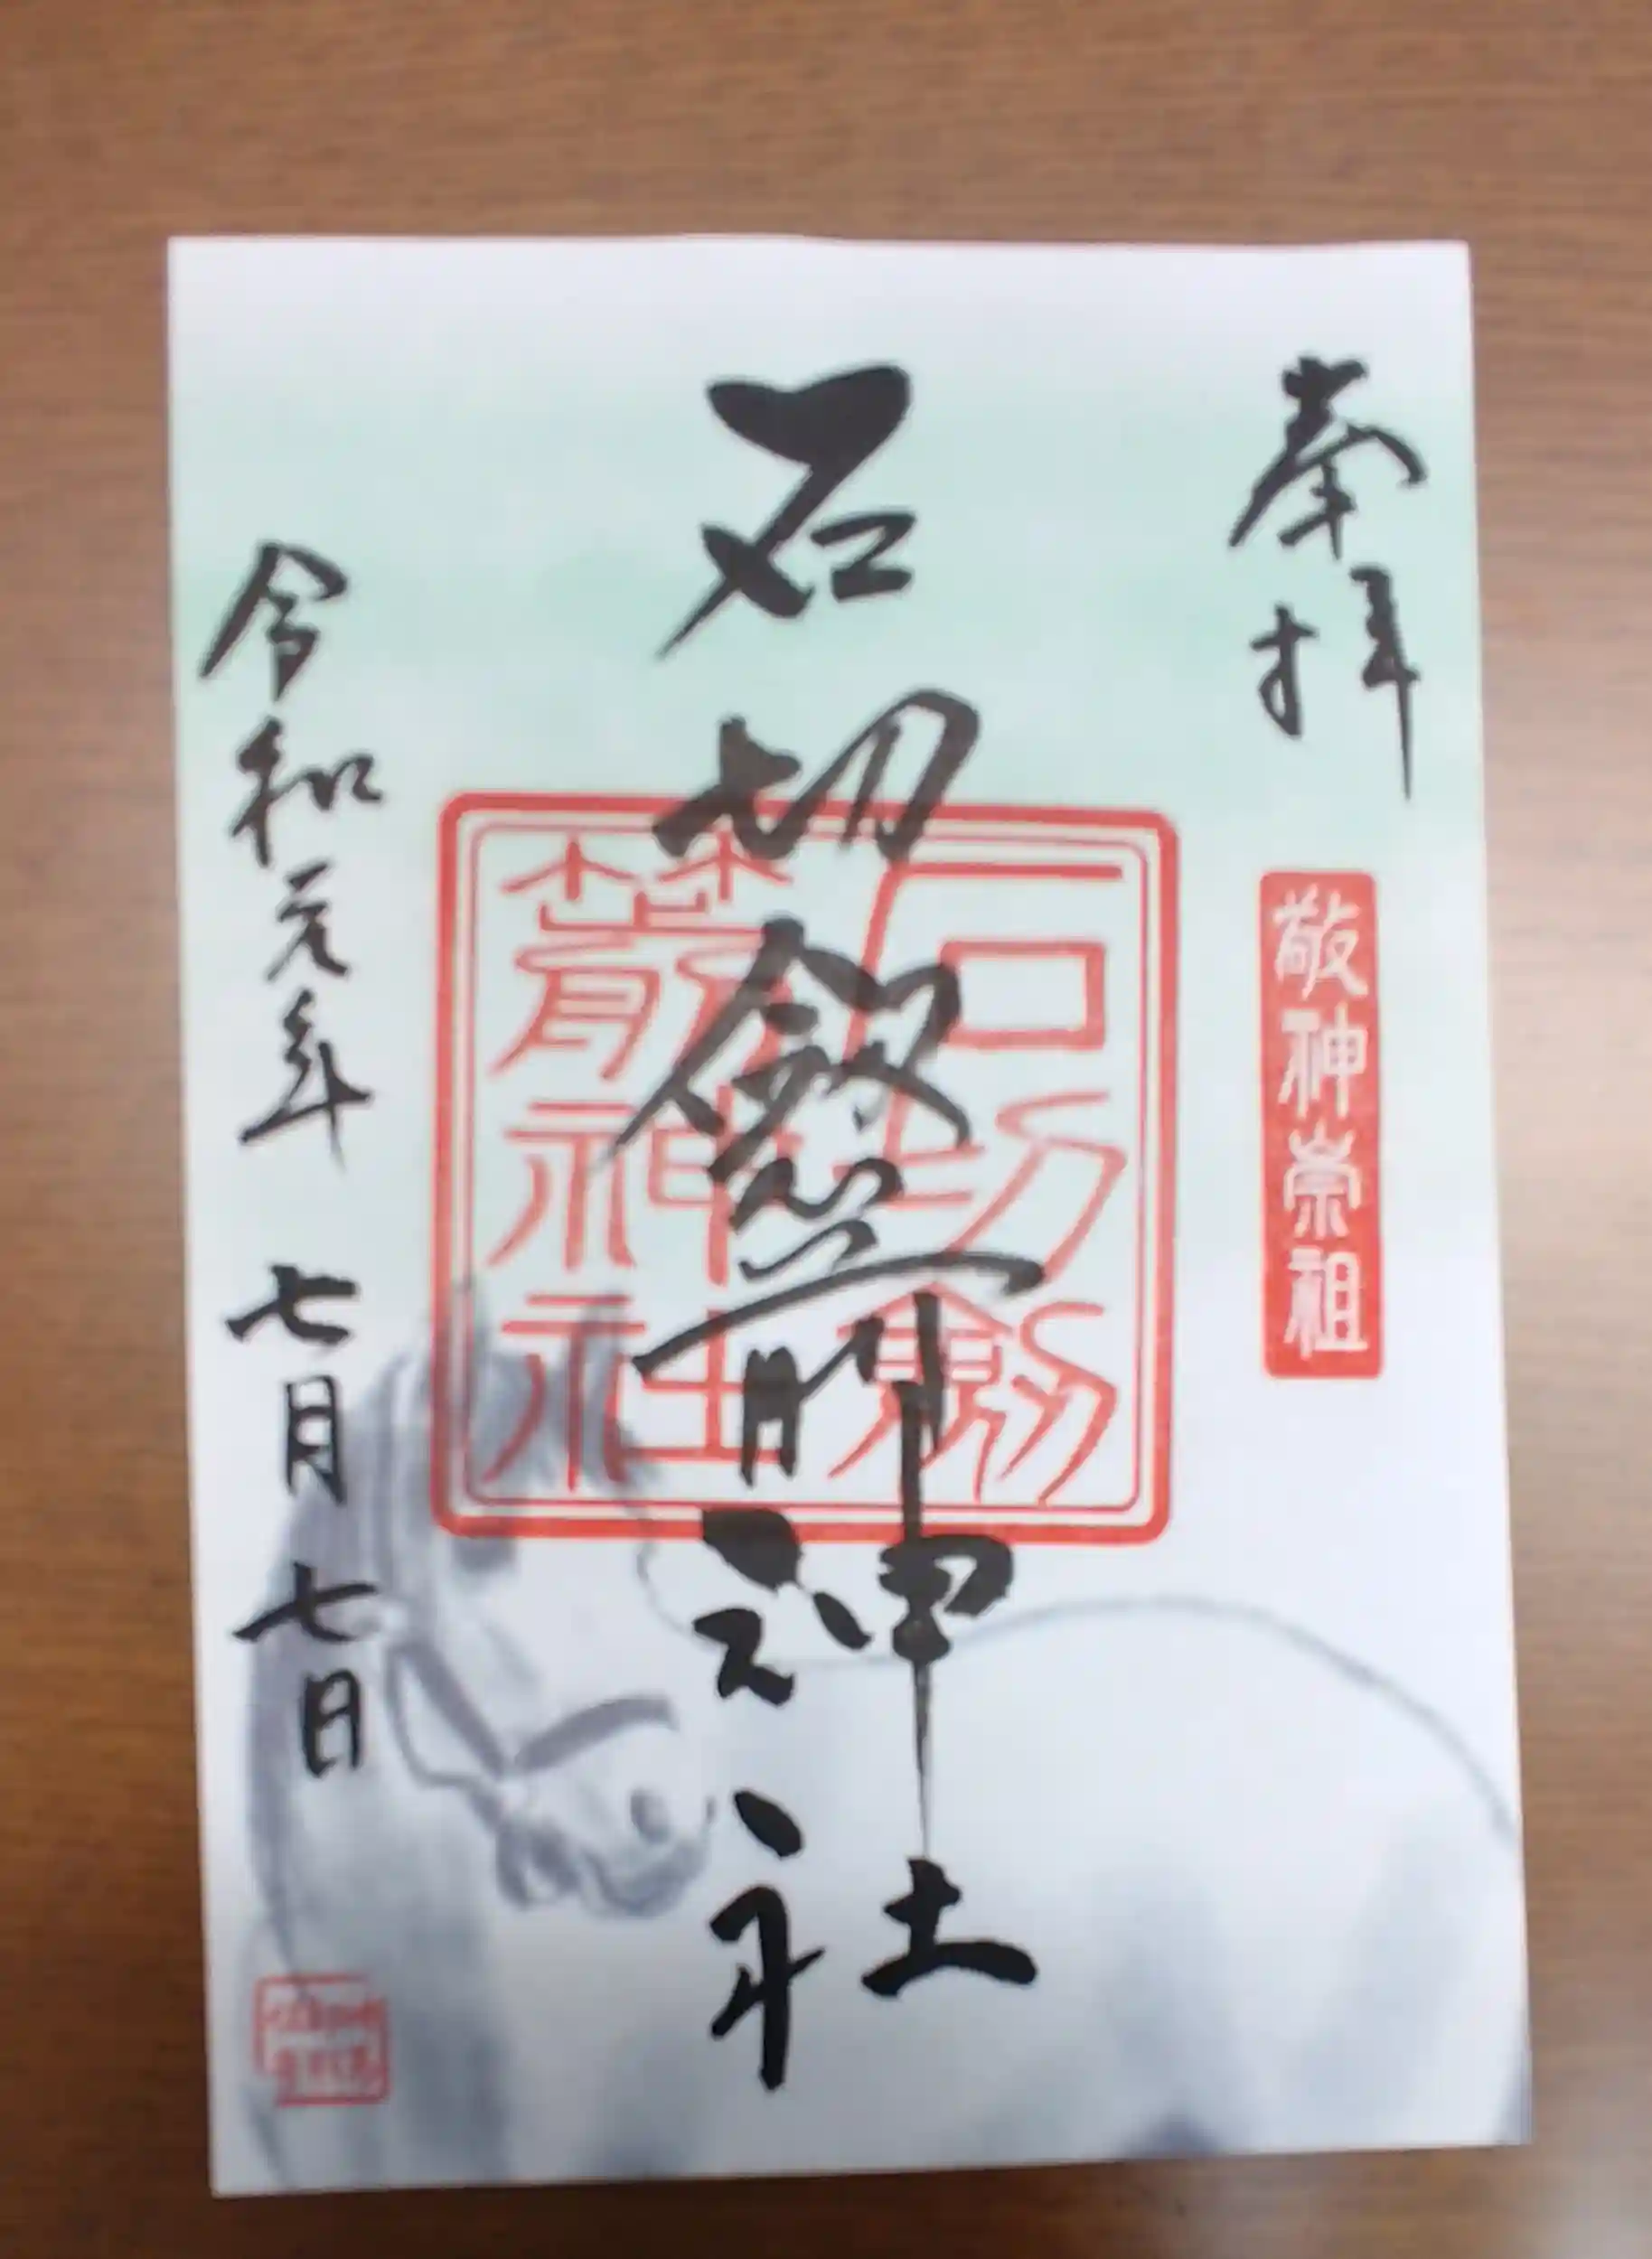 奉拝
敬神崇祖
石切劔箭神社
石切劔
箭神社
令和元年 七月 七日